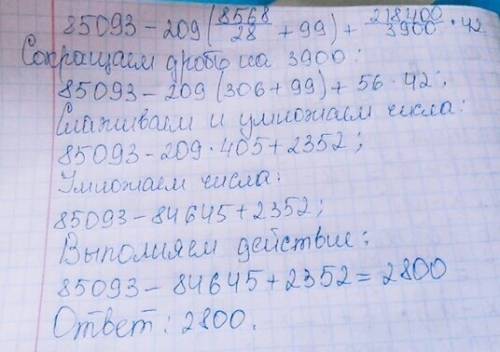 85093 - 209 (8568/28 + 99) + 218400/3900 · 42
Сокращаем дробь на 3900:
85093 - 209 (306 + 99) + 56 · 42;
Слаживаем и умножаем числа:
85093 - 209 · 405 + 2352;
Умножаем числа:
85093 - 84645 + 2352;
Выполняем действие:
85093 - 84645 + 2352 = 2800
Ответ: 2800.